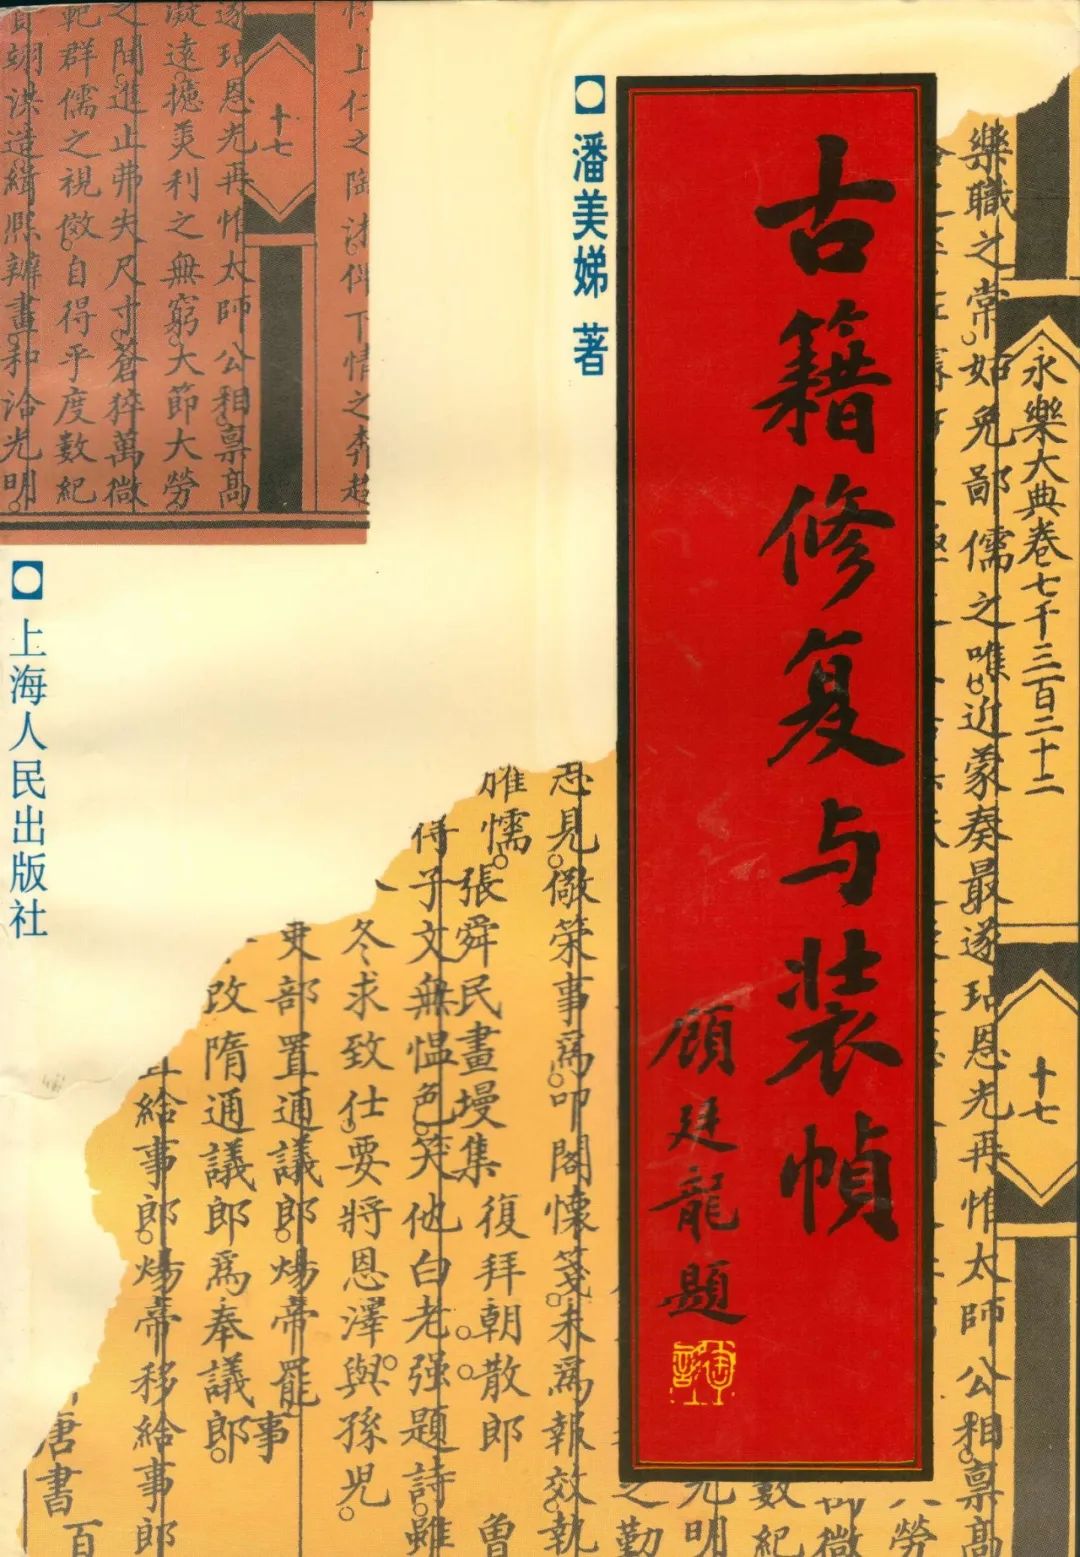 古籍修复与装帧
顾廷龍題
潘美娣 著
上海人民出版社
永樂大典卷七千三百二十二
十七
樂職之常如兔鄙儒之唯近蒙奏最遂玷恩光再惟太師公相禀高
忍見儆榮事爲叩閣懷箋未爲報效執
雖懦
張舜民畫墁集
復拜朝散郎
曾
得子文無愠色笑他白老强題詩雖
冬求致仕要將恩澤與孫兒
吏部置通議郎煬帝罷
事
改隋通議郎爲奉議郎
給事郎煬帝移給事郎
唐書
百
之勤
光明
數紀
微
勞
上仁之陶沐俾下情之奔趨
十七
遂玷恩光再惟太師公相禀高
凝遠摅美利之無窮大節大勞
之間進止弗失尺寸蒼猝萬微
範群儒之視傚自得乎度數紀
翊謀造緝熙辦畫和洽光明